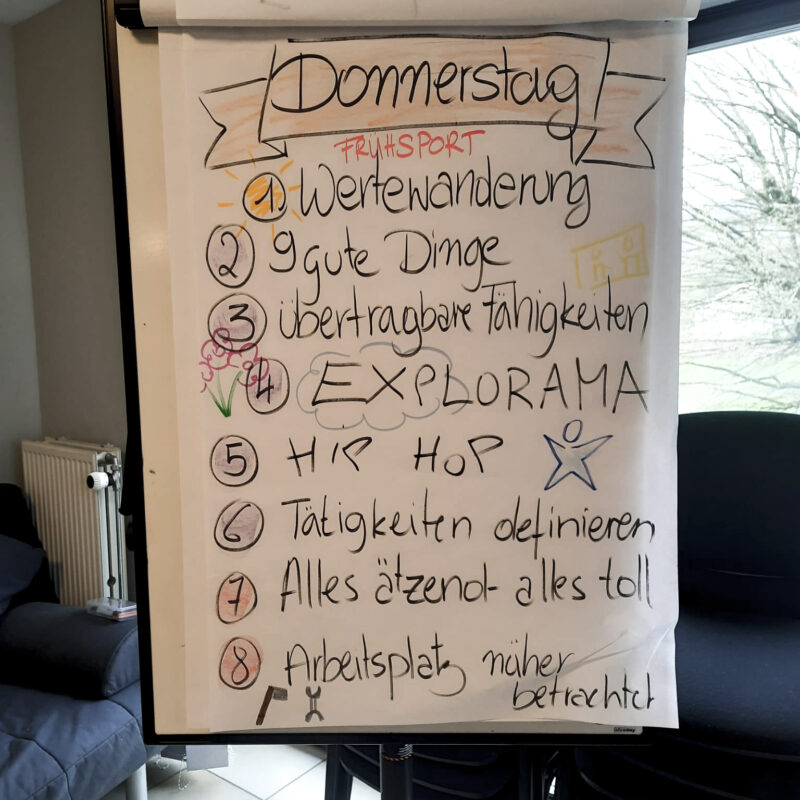 Donnerstag
FRÜHSPORT
1. Wertewanderung
2 9 gute Dinge
3 übertragbare Fähigkeiten
4 EXPLORAMA
5 HIP HOP
6 Tätigkeiten definieren
7 Alles ätzend - alles toll
8 Arbeitsplatz näher
betrachtet